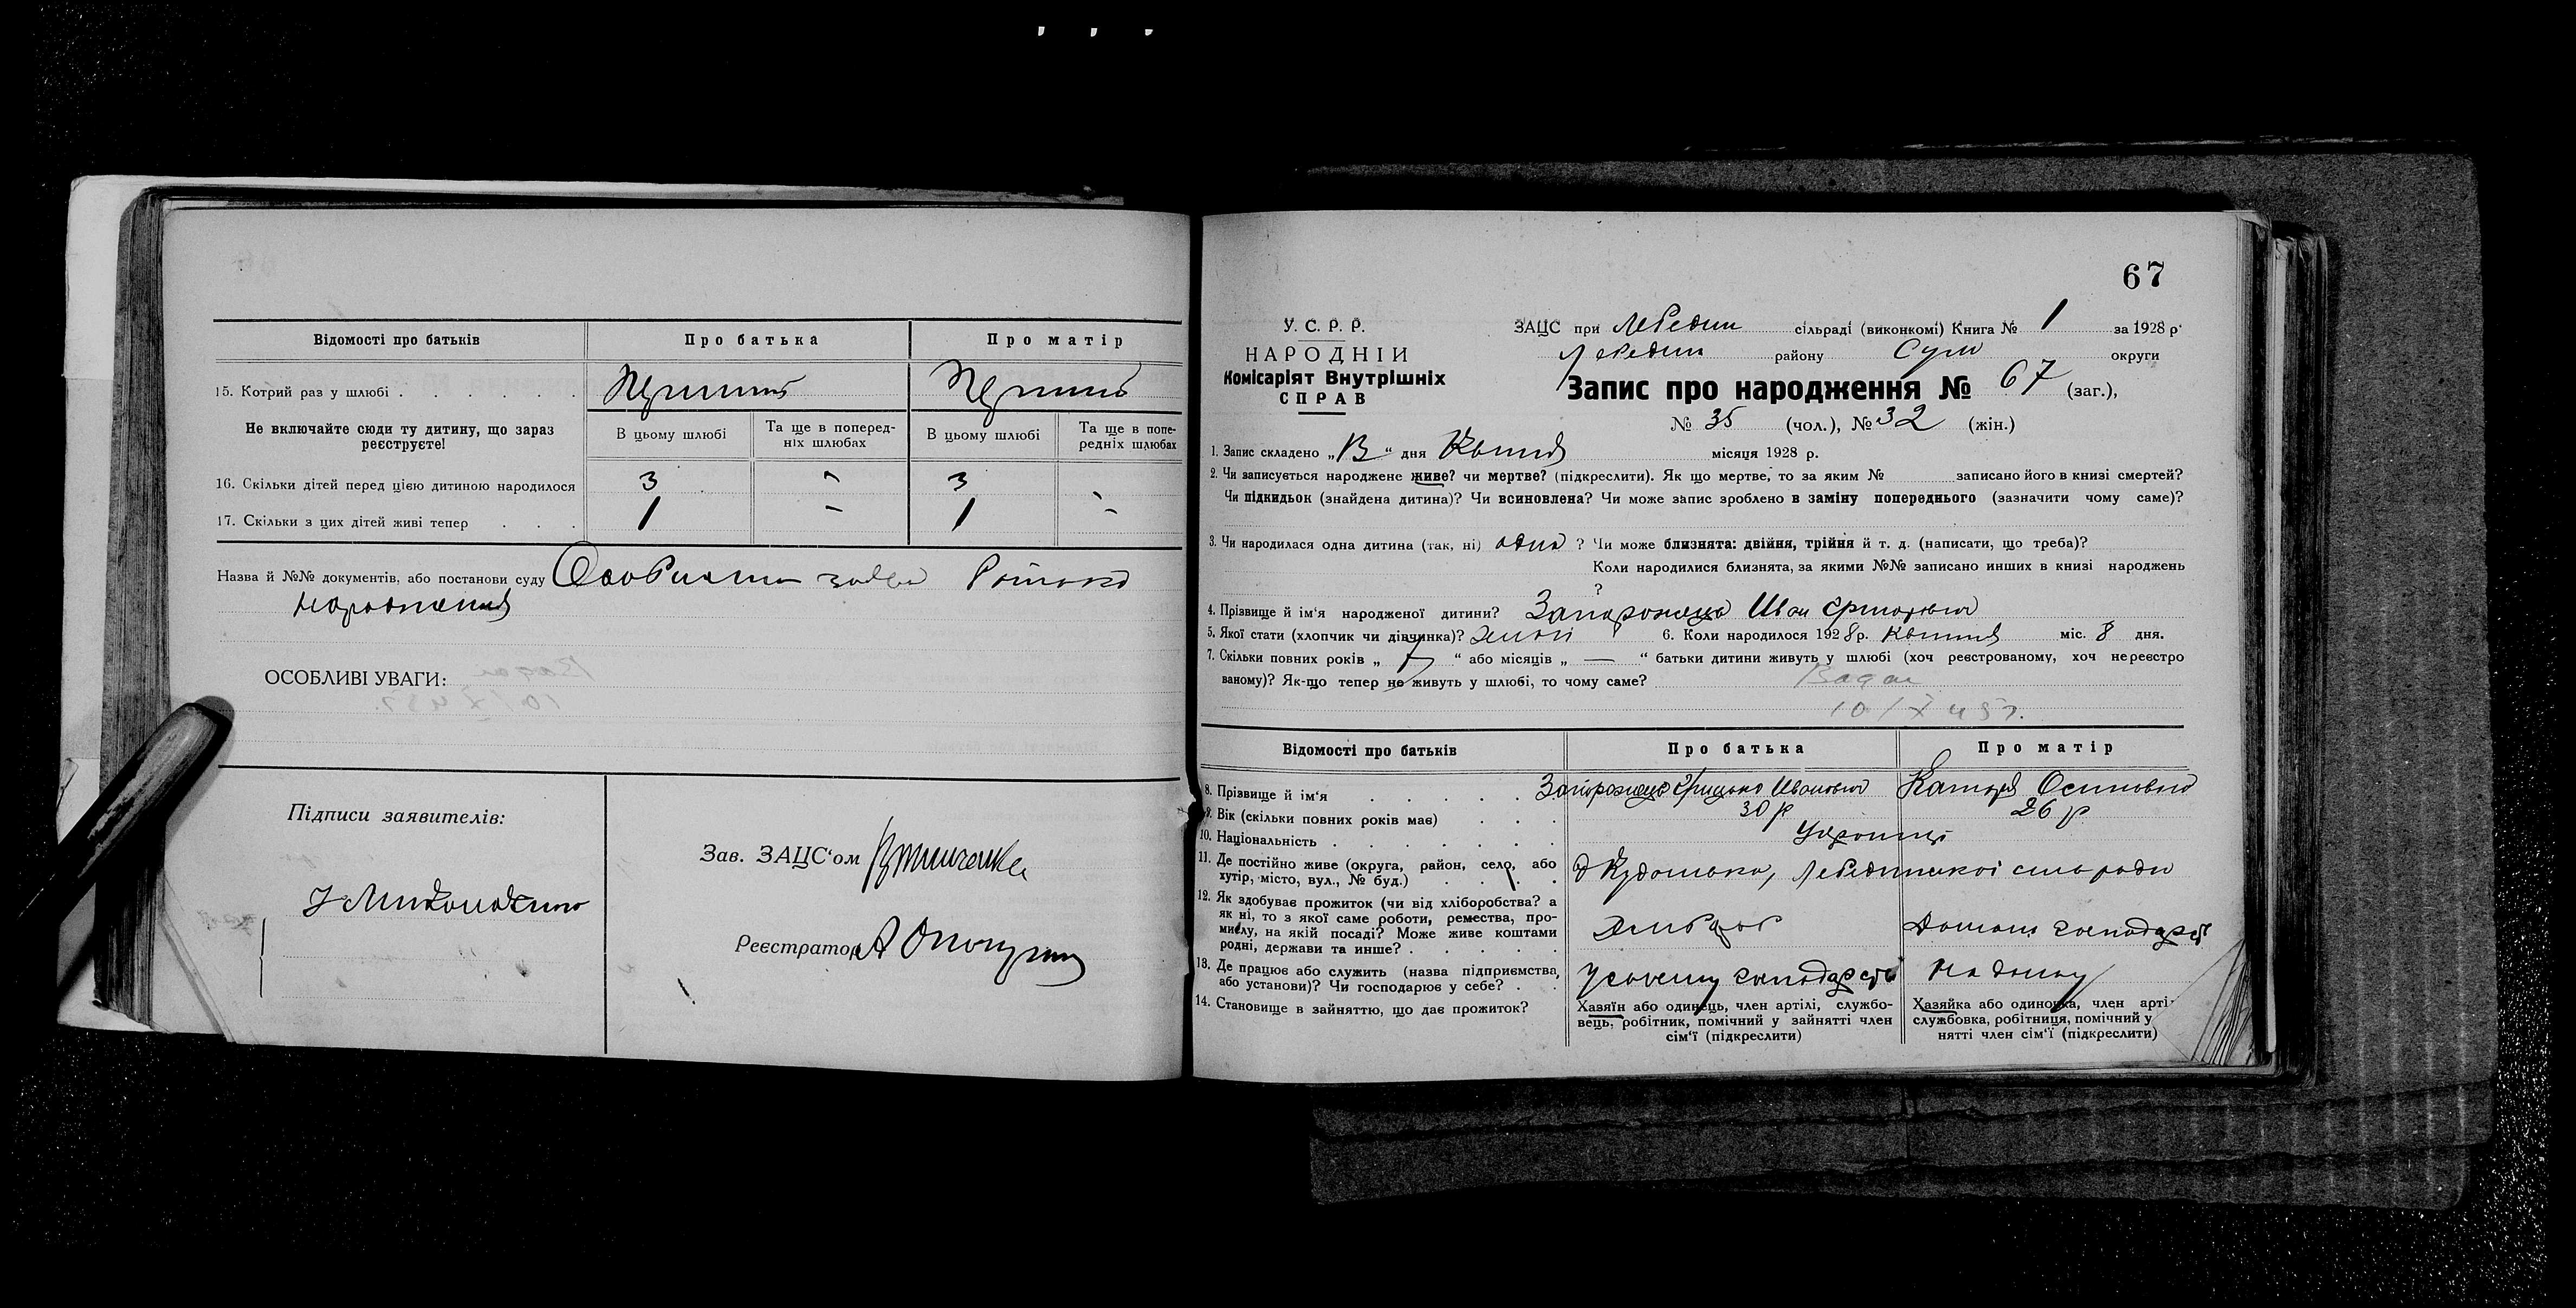 Відомості про батьків
Про батька
Про матір
15. Котрий раз у шлюбі . . . . . .
Не включайте сюди ту дитину, що зараз реєструєте!
В цьому шлюбі
Та ще в поперед-
ніх шлюбах
В цьому шлюбі
Та ще в попе-
редніх шлюбах
16. Скільки дітей перед цією дитиною народилося 3 - 3 -
17. Скільки з цих дітей живі тепер . . . 1 - 1 -
Назва й №№ документів, або постанови суду Особиста заява
народження
ОСОБЛИВІ УВАГИ:
Підписи заявителів:
Зав. ЗАЦС'ом
Реєстратор
67
У. С. Р. Р.
НАРОДНІЙ
Комісаріят Внутрішніх
СПРАВ
ЗАЦС при Лебедин сільраді (виконкомі) Книга № 1 за 1928 р.
Лебедин району Сум округи
Запис про народження № 67 (заг.),
№ 35 (чол.), № 32 (жін.)
1. Запис складено „13“ дня Квітня місяця 1928 р.
2. Чи записується народжене живе? чи мертве? (підкреслити). Як що мертве, то за яким № записано його в книзі смертей?
Чи підкидьок (знайдена дитина)? Чи всиновлена? Чи може запис зроблено в заміну попереднього (зазначити чому саме)?
3. Чи народилася одна дитина (так, ні) одна ? Чи може близнята: двійня, трійня й т. д. (написати, що треба)?
Коли народилися близнята, за якими №№ записано инших в книзі народжень
?
4. Прізвище й ім'я народженої дитини? Запорожець Іван Григорович
5. Якої стати (хлопчик чи дівчинка)? 6. Коли народилося 1928 р. Квітня міс. 8 дня.
7. Скільки повних років „7“ або місяців „—“ батьки дитини живуть у шлюбі (хоч реєстрованому, хоч нереєстро
ваному)? Як-що тепер не живуть у шлюбі, то чому саме?
Відомості про батьків
Про батька
Про матір
8. Прізвище й ім'я . . . . . Запорожець Грицько Іванович Осиповна
9. Вік (скільки повних років має) . . . 30 р 26 р
10. Національність . . . . . . . Українці
11. Де постійно живе (округа, район, село, або
хутір, місто, вул., № буд.) . . . . Лебединської сільради
12. Як здобуває прожиток (чи від хліборобства? а
як ні, то з якої саме роботи, ремества, про-
мислу, на якій посаді? Може живе коштами
родні, держави та инше? . . . . . Хлібороб
13. Де працює або служить (назва підприємства,
або установи)? Чи господарює у себе? . . У своєму господарстві На дому
14. Становище в зайняттю, що дає прожиток?
Хазяїн або одинець, член артілі, службо-
вець, робітник, помічний у зайнятті член
сім'ї (підкреслити)
Хазяйка або одиночка, член арті
службовка, робітниця, помічний у
нятті член сім'ї (підкреслити)